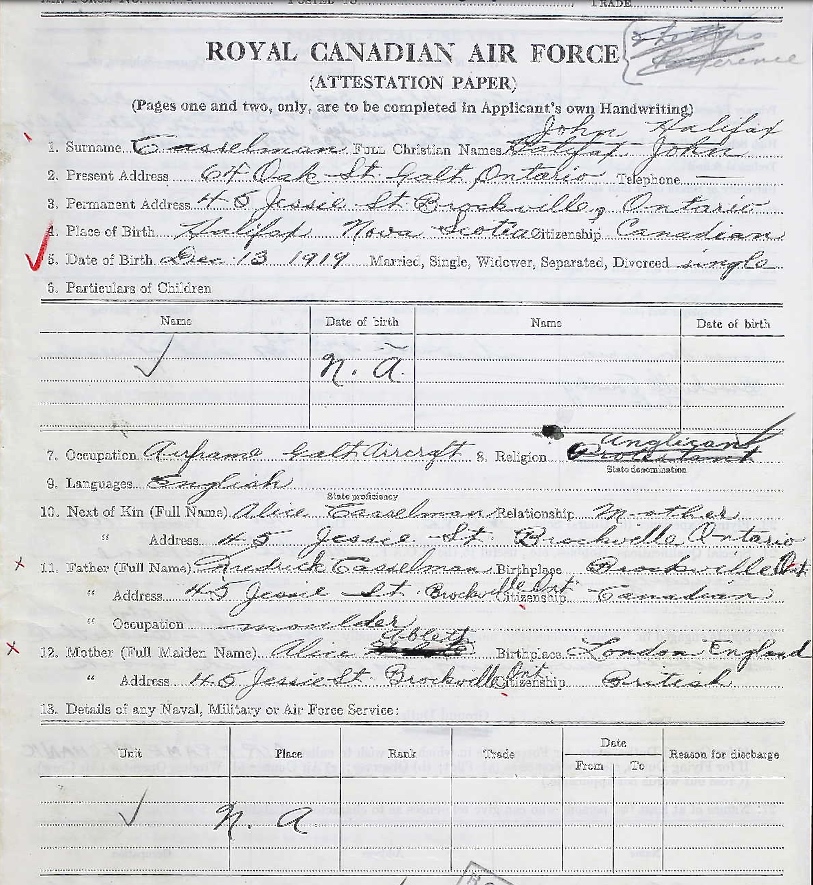 TRADE
ROYAL CANADIAN AIR FORCE
(ATTESTATION PAPER)
(Pages one and two, only, are to be completed in Applicant's own Handwriting)
John Halifax
1. Surname Casselman Full Christian Names Halifax John
2. Present Address 64 Oak St Galt, Ontario Telephone —
3. Permanent Address 45 Jessie St Brockville, Ontario
4. Place of Birth Halifax Nova Scotia Citizenship Canadian
5. Date of Birth Dec 13 1919 Married, Single, Widower, Separated, Divorced single
6. Particulars of Children
Name Date of birth Name Date of birth
✓ N. A.
Anglican
7. Occupation Airframe Galt Aircraft 8. Religion Protestant
State denomination
9. Languages English
State proficiency
10. Next of Kin (Full Name) Alice Casselman Relationship Mother
" Address 45 Jessie St. Brockville, Ontario
11. Father (Full Name) Fredrick Casselman Birthplace Brockville Ont.
" Address 45 Jessie St. Brockville Ont Citizenship Canadian
" Occupation moulder
Ablett
12. Mother (Full Maiden Name) Alice Birthplace London England
" Address 45 Jessie St Brockville Ont Citizenship British
13. Details of any Naval, Military or Air Force Service:
Unit Place Rank Trade Date Reason for discharge
From To
✓ N. A